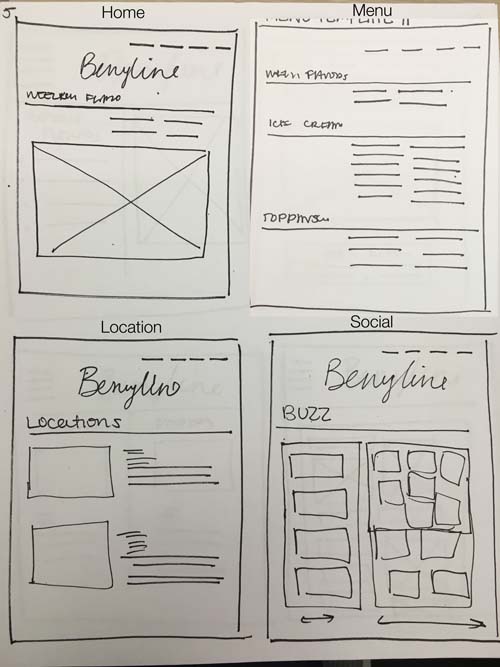 5
Home
Benyline
WEEKLY FLAVO
Menu
MENU TEMPLATE II
ICE CREAM
TOPPINGS
Location
Benyline
LOCATIONS
Social
Benyline
BUZZ